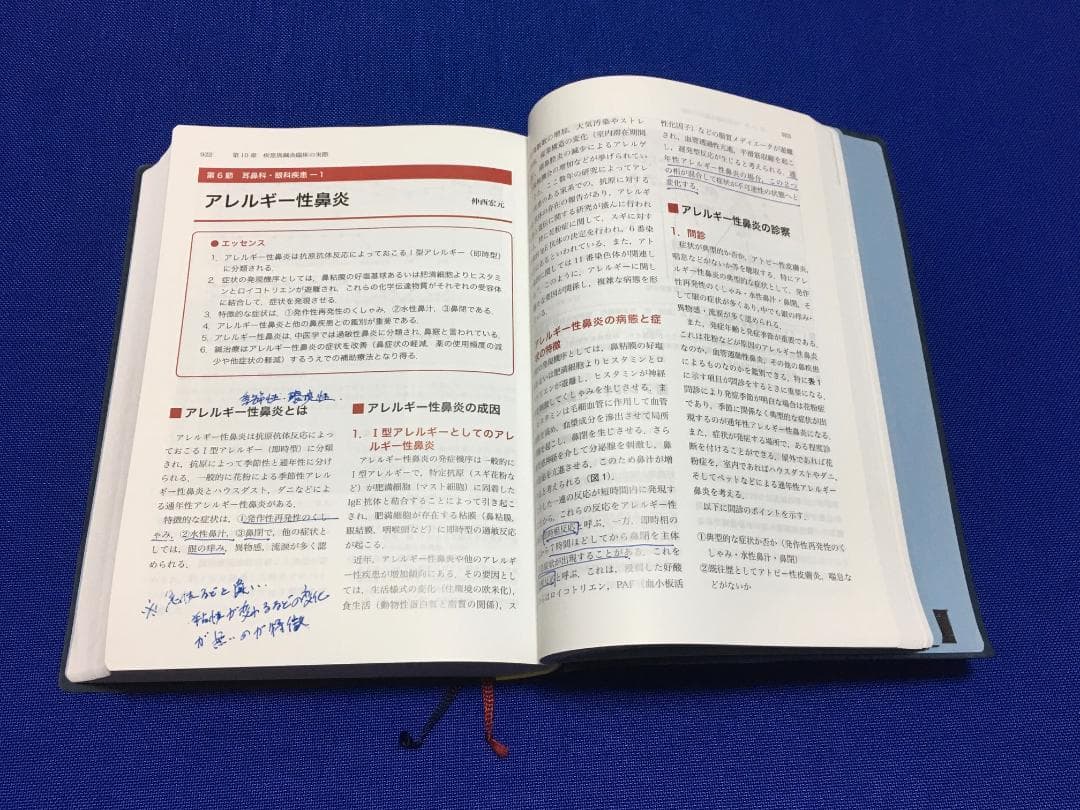 922 第10章 疾患別鍼灸臨床の実際
第6節 耳鼻科・眼科疾患―1
アレルギー性鼻炎
仲西宏元
●エッセンス
1. アレルギー性鼻炎は抗原抗体反応によっておこるⅠ型アレルギー（即時型）
に分類される．
2. 症状の発現機序としては，鼻粘膜の好塩基球あるいは肥満細胞よりヒスタミ
ンとロイコトリエンが遊離され，これらの化学伝達物質がそれぞれの受容体
に結合して，症状を発現させる．
3. 特徴的な症状は，①発作性再発性のくしゃみ，②水性鼻汁，③鼻閉である．
4. アレルギー性鼻炎と他の鼻疾患との鑑別が重要である．
5. アレルギー性鼻炎は，中医学では過敏性鼻炎に分類され，鼻鼽と言われている．
6. 鍼治療はアレルギー性鼻炎の症状を改善（鼻症状の軽減，薬の使用頻度の減
少や他症状の軽減）するうえでの補助療法となり得る．
季節性・環境性．
■アレルギー性鼻炎とは
アレルギー性鼻炎は抗原抗体反応によっ
ておこるⅠ型アレルギー（即時型）に分類
され，抗原によって季節性と通年性に分け
られる．一般的に花粉による季節性アレル
ギー性鼻炎とハウスダスト，ダニなどによ
る通年性アレルギー性鼻炎がある．
特徴的な症状は，①発作性再発性のくし
ゃみ，②水性鼻汁，③鼻閉で，他の症状と
しては，眼の痒み，異物感，流涙が多く認
められる．
※急性などと違い
粘性が変わるなどの変化
が無いのが特徴
■アレルギー性鼻炎の成因
1. Ⅰ型アレルギーとしてのアレ
ルギー性鼻炎
アレルギー性鼻炎の発症機序は一般的に
Ⅰ型アレルギーで，特定抗原（スギ花粉な
ど）が肥満細胞（マスト細胞）に固着した
IgE抗体と結合することによって引き起こ
され，肥満細胞が存在する粘膜（鼻粘膜，
眼結膜，咽喉頭など）に即時型の過敏反応
が起こる．
近年，アレルギー性鼻炎や他のアレルギ
ー性疾患が増加傾向にある．その要因とし
ては，生活様式の変化（住環境の欧米化），
食生活（動物性蛋白質と脂質の関係），ス
の増加，大気汚染やストレ
環境の変化（室内滞在期間
寄生虫の減少によるアレルゲ
機会の増加などが挙げられてい
，ここ数年の研究によってアレ
のある家系での，抗原に対する
の存在の報告があり，アレルギ
と遺伝に関する研究が盛んに行われ
特に花粉症に関して，スギに対す
E抗体の決定を行われ，6番染
るといわれている．また，アト
関しては11番染色体が関連し
．このように，アレルギーに関し
な要因が関係し，複雑な病態を形
．
アレルギー性鼻炎の病態と症
状の特徴
の発現機序としては，鼻粘膜の好塩
いは肥満細胞よりヒスタミンとロ
エンが遊離し，ヒスタミンが神経
激してくしゃみを生じさせる．主
スタミンは毛細血管に作用して血管
高め，血漿成分を滲出させて局所
を起こし，鼻閉を生じさせる．さら
感神経を介して分泌腺を刺激し，鼻
亢進させる．このため鼻汁が増
と考えられる（図1）．
した一連の反応が短時間内に発現す
から，これらの反応をアレルギー性
即時相反応と呼ぶ．一方，即時相の
て時間ほどしてから鼻閉を主体
症状が出現することがある．これを
反応と呼ぶ．これは，浸潤した好酸
はロイコトリエン，PAF（血小板活
923
性化因子）などの脂質メディエータが遊離
され，血管透過性亢進，平滑筋収縮を起こ
し，遅発型反応が生じると考えられる．通
年性アレルギー性鼻炎の場合，この2つ
の相が混合して症状が不可逆性の状態へと
変化する．
■アレルギー性鼻炎の診察
1. 問診
症状が典型的か否か，アトピー性皮膚炎，
喘息などがないか等を聴取する．特にアレ
ルギー性鼻炎の典型的な症状として，発作
性再発性のくしゃみ・水性鼻汁・鼻閉，そ
して眼の症状が多くあり，中でも眼の痒み・
異物感・流涙が多く認められる．
また，発症年齢と発症季節が重要である．
これは花粉などが原因のアレルギー性鼻炎
なのか，血管運動性鼻炎，その他の鼻疾患
によるものなのかを鑑別できる．特に表1
に示す項目が問診をするときに重要になる．
問診により発症季節が明白な場合は花粉症
であり，季節に関係なく典型的な症状が出
現するのが通年性アレルギー性鼻炎になる．
また，症状が発症する場所で，ある程度診
断を付けることができる．屋外であれば花
粉症を，室内であればハウスダストやダニ，
そしてペットなどによる通年性アレルギー
鼻炎を考える．
以下に問診のポイントを示す．
①典型的な症状か否か（発作性再発性のく
しゃみ・水性鼻汁・鼻閉）
②既往歴としてアトピー性皮膚炎，喘息な
どがないか